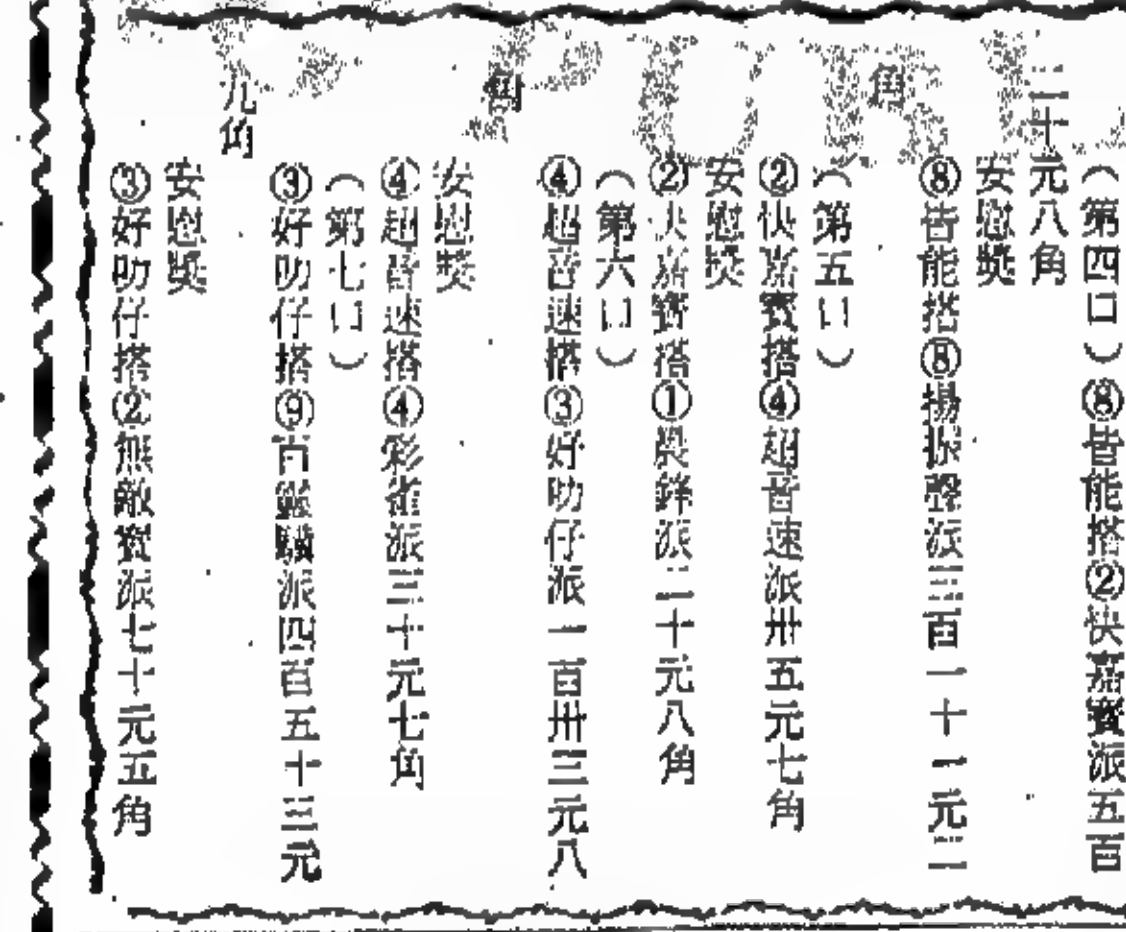 （第四口）⑧皆能搭②快嘉寳派五百
二十元八角
安慰奬
⑧皆能搭⑧揚振聲派三百一十一元二
角
（第五口）
②快嘉寳搭④超音速派卅五元七角
安慰奬
②快嘉寳搭①農鋒派二十元八角
（第六口）
④超音速搭③好叻仔派一百卅三元八
角
安慰奬
④超音速搭④彩雀派三十元七角
（第七口）
③好叻仔搭⑨百靈驥派四百五十三元
九角
安慰奬
③好叻仔搭②無敵寳派七十元五角